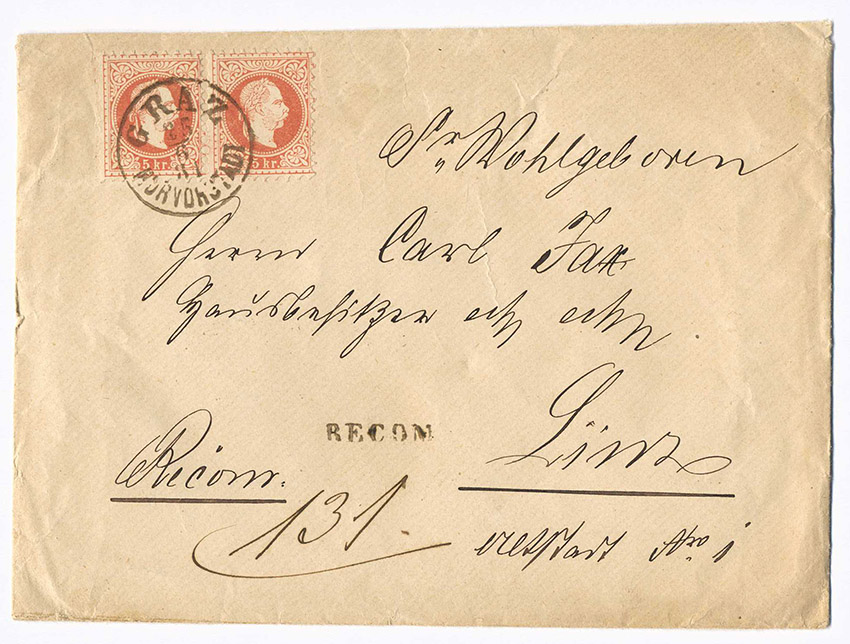 5 kr. 5 kr.
GRAZ
MURVORSTADT
Sr Wohlgeboren
Herrn Carl Jax
Hausbesitzer etc etc
RECOM
Linz
Recom.
131.
Altstadt Nro 1